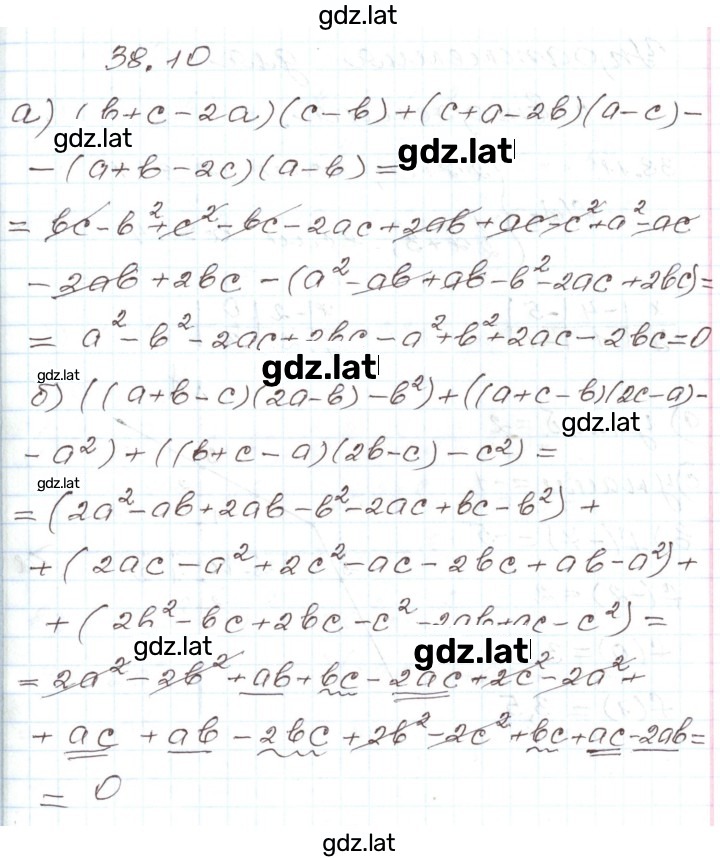 gdz.lat
38.10
а) (b+c-2a)(c-b)+(c+a-2b)(a-c)-
gdz.lat
gdz.lat
-(a+b-2c)(a-b)=
= bc-b²+c²-bc-2ac+2ab+ac-c²+a²-ac
-2ab+2bc-(a²-ab+ab-b²-2ac+2bc)=
= a²-b²-2ac+2bc-a²+b²+2ac-2bc=0
gdz.lat
gdz.lat
б) ((a+b-c)(2a-b)-b²)+((a+c-b)(2c-a)-
gdz.lat
-a²)+((b+c-a)(2b-c)-c²)=
gdz.lat
=(2a²-ab+2ab-b²-2ac+bc-b²)+
+(2ac-a²+2c²-ac-2bc+ab-a²)+
+(2b²-bc+2bc-c²-2ab+ac-c²)=
gdz.lat
gdz.lat
=2a²-2b²+ab+bc-2ac+2c²-2a²+
+ac+ab-2bc+2b²-2c²+bc+ac-2ab=
= 0
gdz.lat